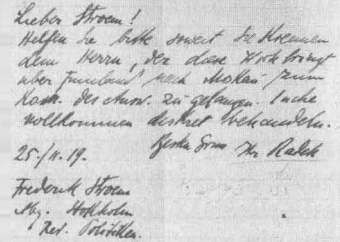 Lieber Stroem!
Helfen Sie bitte soweit Sie Koennen
dem Herrn, der diese bringt
über Finnland nach Moskau zum
Kom. des Ausw. zu gelangen. Sache
vollkommen diskret behandeln.
25./11.19. Besten Gruss Ihr Radek
Frederik Stroem
Stockholm
Red. Politiken.